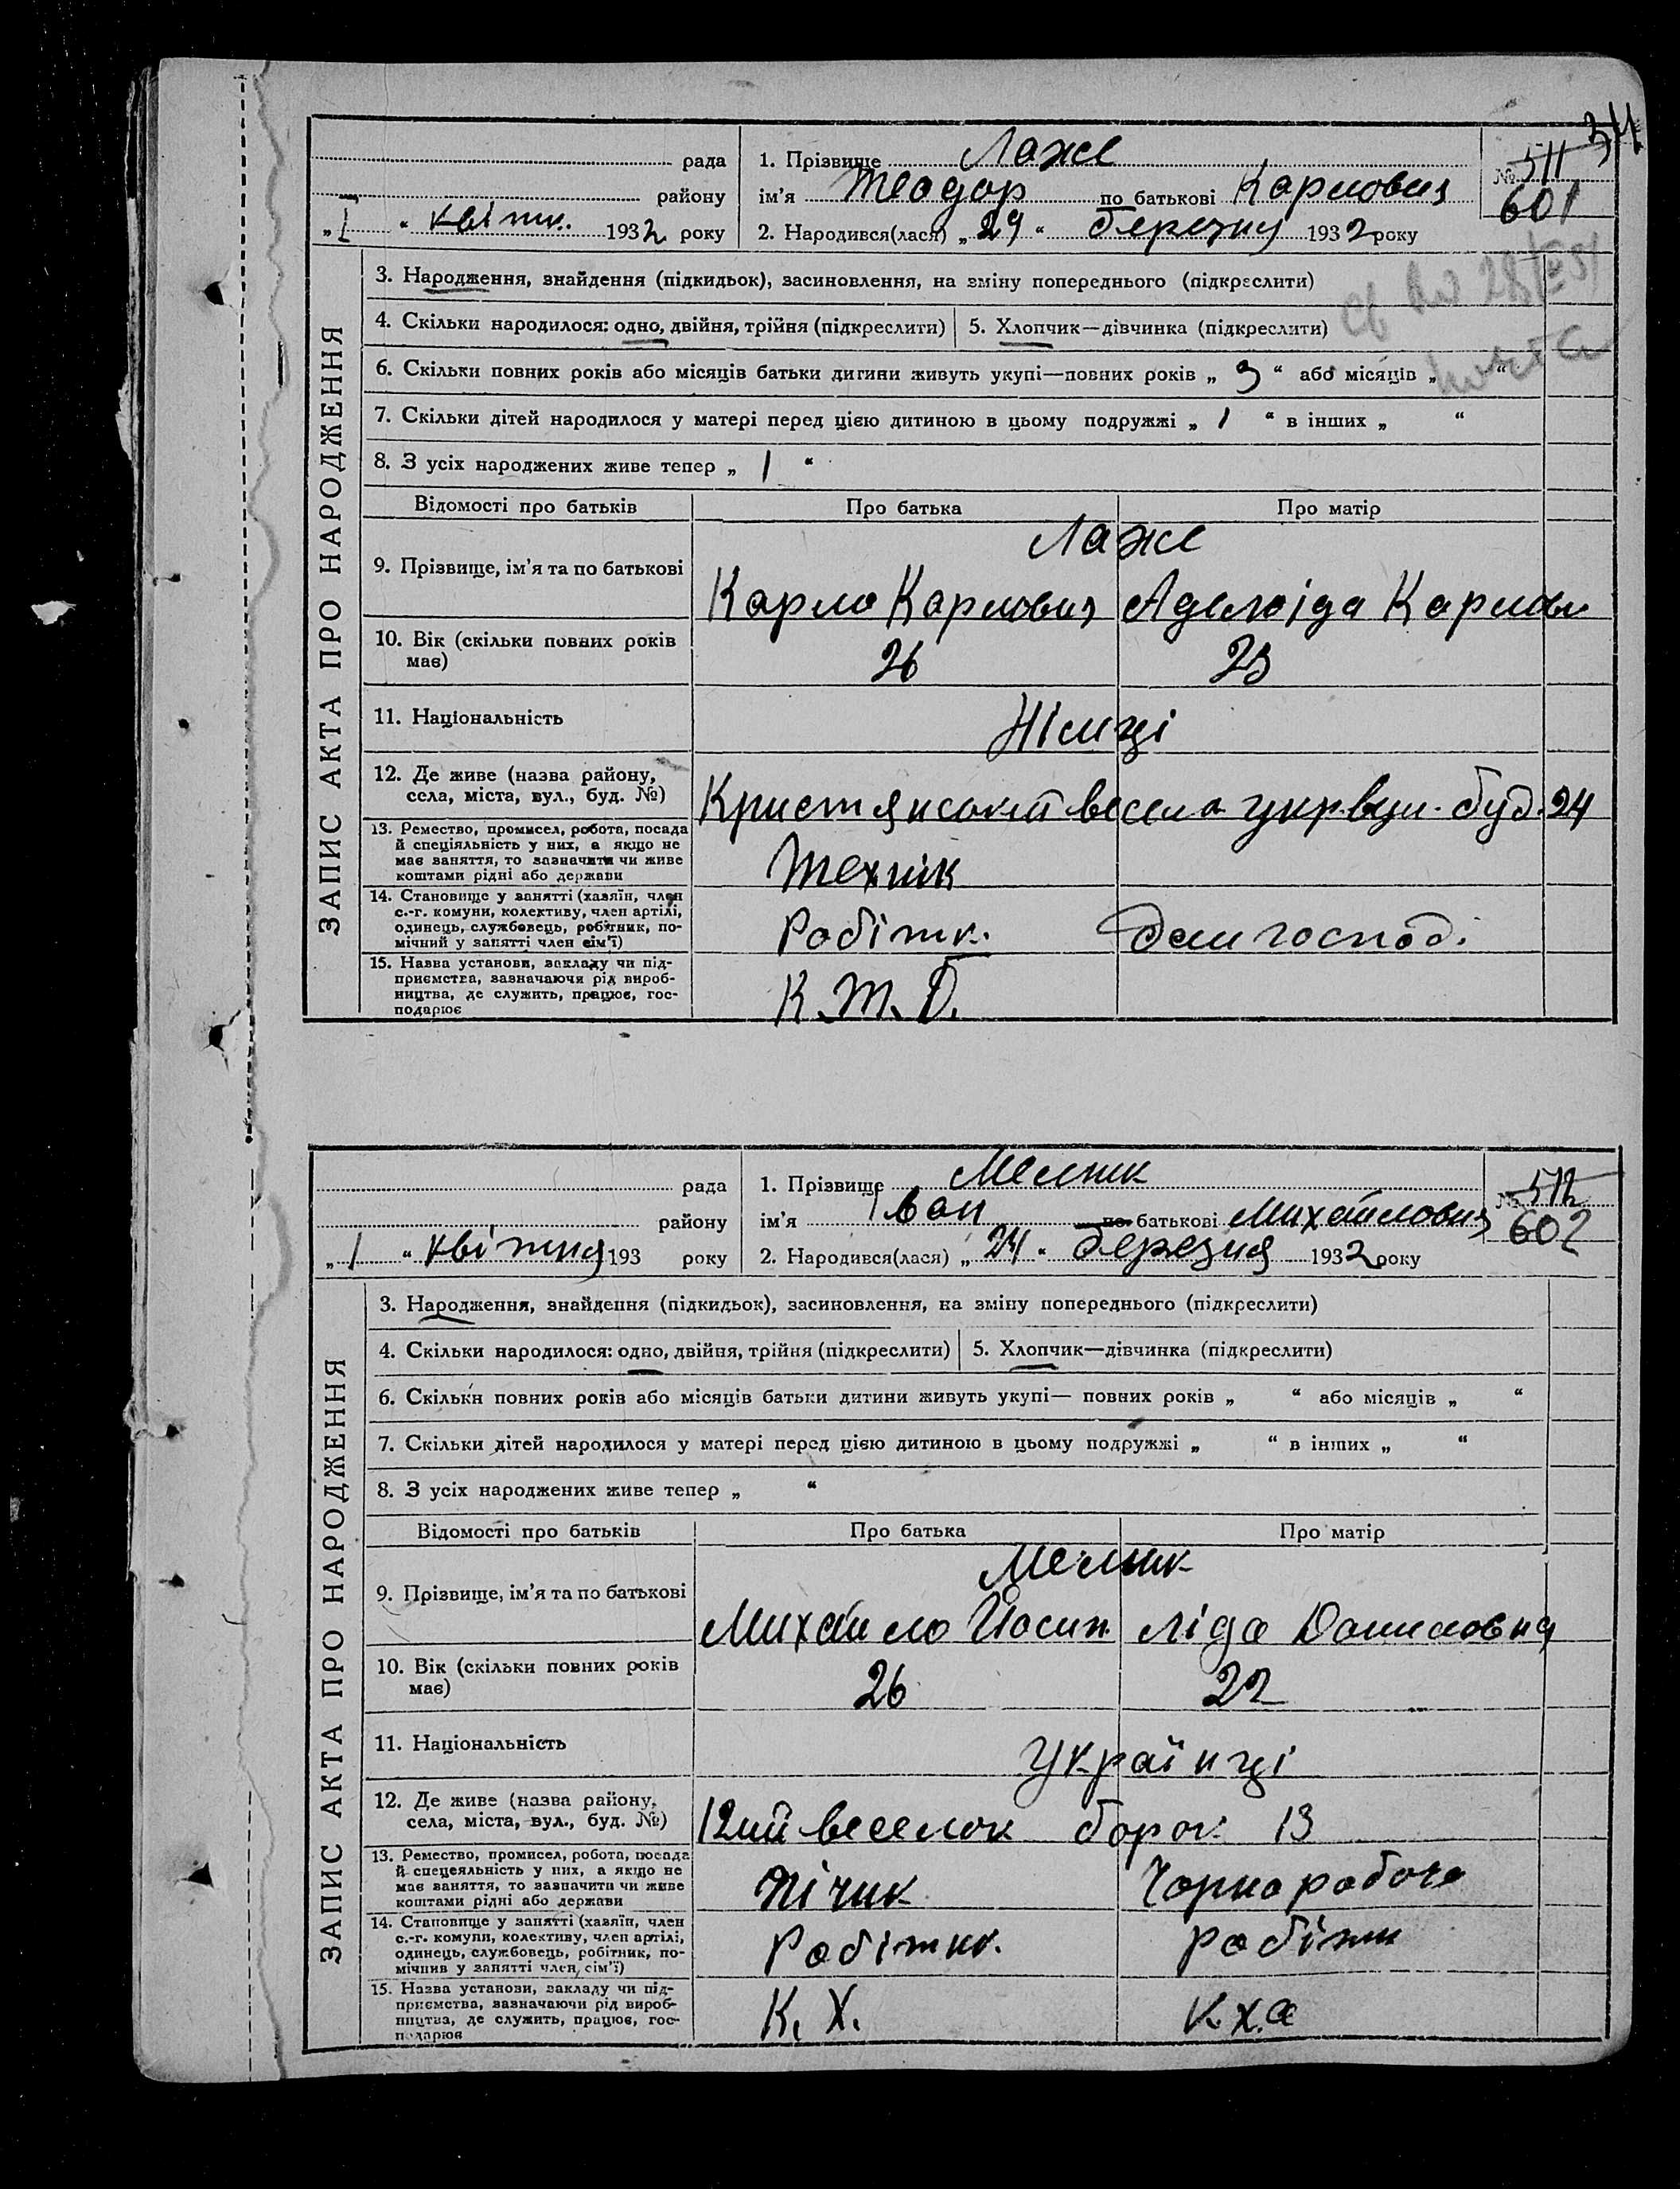 ЗАПИС АКТА ПРО НАРОДЖЕННЯ
рада
району
„ I “ квітн. 1932 року
1. Прізвище Лаже
ім'я Теодор по батькові Карлович
2. Народився(лася) „ 29 “ березня 1932 року
№ 511
601
3. Народження, знайдення (підкидьок), засиновлення, на зміну попереднього (підкреслити)
4. Скільки народилося: одно, двійня, трійня (підкреслити) 5. Хлопчик—дівчинка (підкреслити)
6. Скільки повних років або місяців батьки дитини живуть укупі—повних років „ 3 “ або місяців „ “
7. Скільки дітей народилося у матері перед цією дитиною в цьому подружжі „ 1 “ в інших „ “
8. З усіх народжених живе тепер „ 1 “
Відомості про батьків Про батька Про матір
Лаже
9. Прізвище, ім'я та по батькові Карло Карлович Аделоіда Карлов
10. Вік (скільки повних років має) 26 23
11. Національність Німці
12. Де живе (назва району, села, міста, вул., буд. №) буд. 24
13. Ремество, промисел, робота, посада й спеціяльність у них, а якщо не має заняття, то зазначити чи живе коштами рідні або держави Технік
14. Становище у занятті (хазяїн, член с.-г. комуни, колективу, член артілі, одинець, службовець, робітник, помічний у занятті член сім'ї) Робітк. Дом господ.
15. Назва установи, закладу чи підприємства, зазначаючи рід виробництва, де служить, працює, господарює К.Т.Б.
ЗАПИС АКТА ПРО НАРОДЖЕННЯ
рада
району
„ 1 “ квітня 193 року
1. Прізвище Мелник
ім'я Іван по батькові Михайлович
2. Народився(лася) „ 24 “ березня 1932 року
№ 512
602
3. Народження, знайдення (підкидьок), засиновлення, на зміну попереднього (підкреслити)
4. Скільки народилося: одно, двійня, трійня (підкреслити) 5. Хлопчик—дівчинка (підкреслити)
6. Скільки повних років або місяців батьки дитини живуть укупі— повних років „ “ або місяців „ “
7. Скільки дітей народилося у матері перед цією дитиною в цьому подружжі „ “ в інших „ “
8. З усіх народжених живе тепер „ “
Відомості про батьків Про батька Про матір
Мелник
9. Прізвище, ім'я та по батькові Михайло Йосип. Ліда Даниловна
10. Вік (скільки повних років має) 26 22
11. Національність Українці
12. Де живе (назва району, села, міста, вул., буд. №) 12ий веселок барак 13
13. Ремество, промисел, робота, посада й спецеяльність у них, а якщо не має заняття, то зазначити чи живе коштами рідні або держави Пічник Чорноробоча
14. Становище у занятті (хазяїн, член с.-г. комуни, колективу, член артілі, одинець, службовець, робітник, помічнив у занятті член сім'ї) Робітник. Робітни
15. Назва установи, закладу чи підприємства, зазначаючи рід виробництва, де служить, працює, господарює К. Х. К.Х.